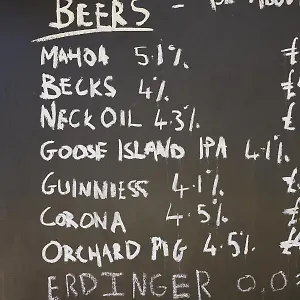 BEERS -
MAHOA 5.1%
BECKS 4% £
NECK OIL 4.3% £
GOOSE ISLAND IPA 4.1%
GUINNIESS 4.1%
CORONA 4.5% £
ORCHARD PIG 4.5% £
ERDINGER 0.0